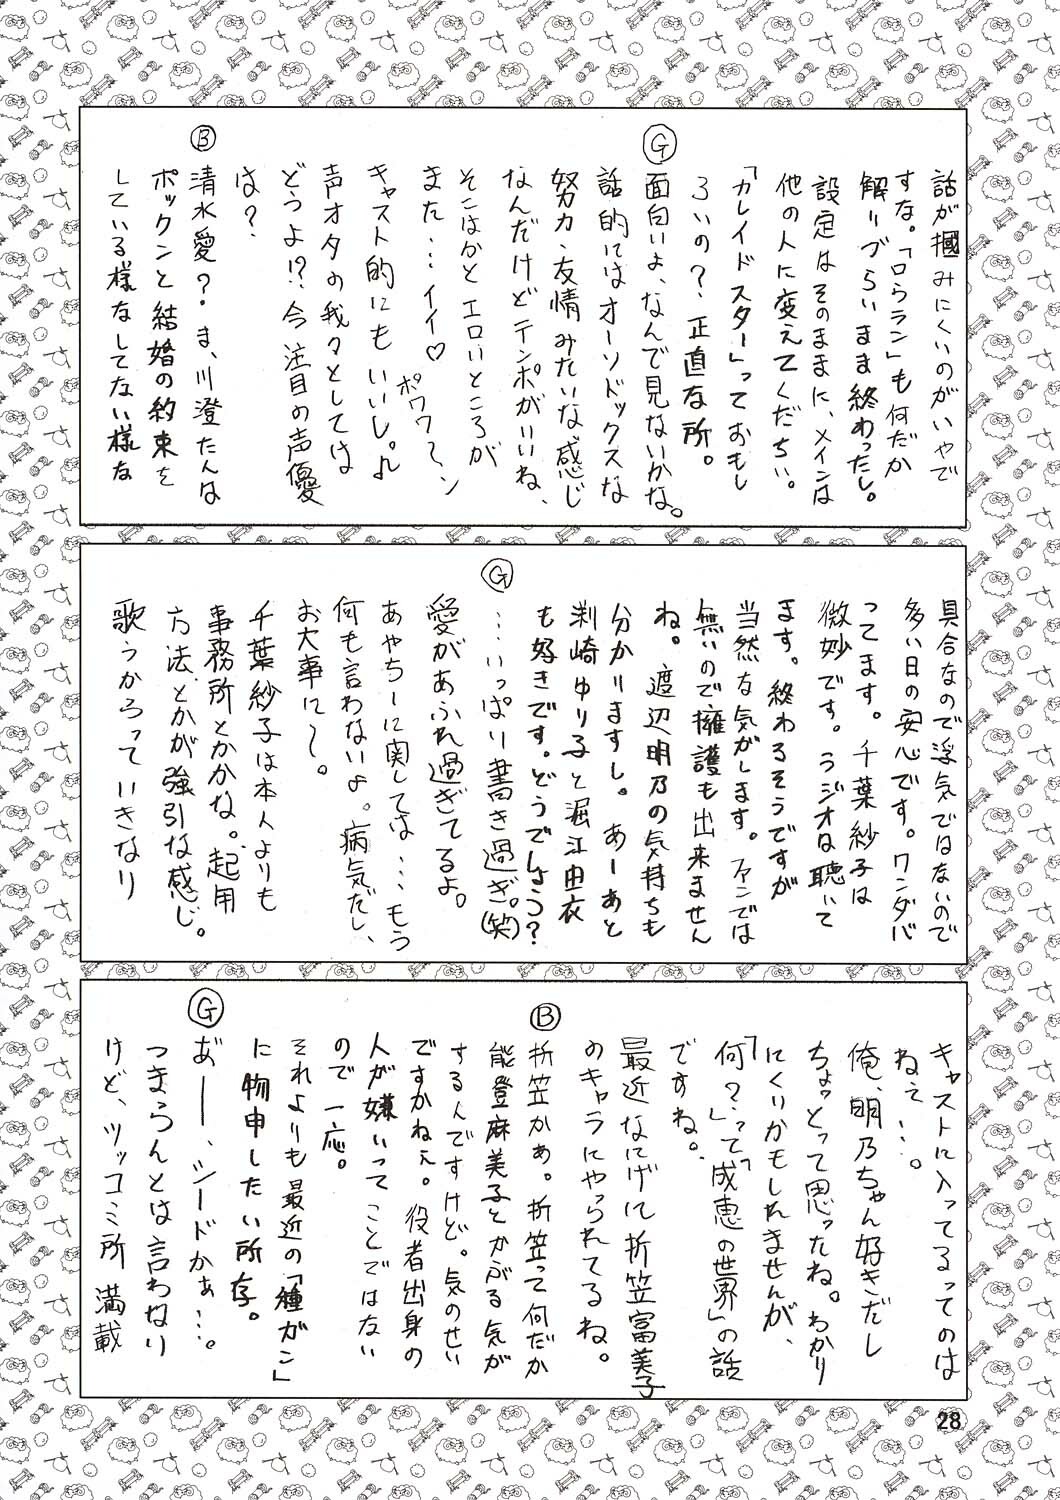 話が摑みにくいのがいやで
すな。「ロラン」も何だか
解りづらいまま終わったし。
設定はそのままに、メインは
他の人に変えてくだちい。
「カレイドスター」っておもし
ろいの?正直な所。
G
面白いよ、なんで見ないかな。
話的にはオーソドックスな
努力、友情みたいな感じ
なんだけどテンポがいいね、
そこはかとエロいところが
また…イイ♡ポワワ〜ン
キャスト的にもいいし。♪
声オタの我々としては
どうよ!?今注目の声優
は?
B
清水愛?ま、川澄たんは
ポックンと結婚の約束を
している様なしてない様な
具合なので浮気ではないので
多い日の安心です。ワンダバ
ってます。千葉紗子は
微妙です。ラジオは聴いて
ます。終わるそうですが
当然な気がします。ファンでは
無いので擁護も出来ません
ね。渡辺明乃の気持ちも
分かりますし。あーあと
渕崎ゆり子と堀江由衣
も好きです。どうでしょう?
G
…いっぱい書き過ぎ。(笑)
愛があふれ過ぎてるよ。
あやちーに関しては…もう
何も言わないよ。病気だし、
お大事に〜。
千葉紗子は本人よりも
事務所とかかな。起用
方法とかが強引な感じ。
歌うからっていきなり
キャストに入ってるってのは
ねぇ…。
俺、明乃ちゃん好きだし
ちょっとって思ったね。わかり
にくいかもしれませんが、
「何?」って「成恵の世界」の話
ですね。
最近なにげに折笠富美子
のキャラにやられてるね。
B
折笠かぁ。折笠って何だか
能登麻美子とかぶる気が
するんですけど。気のせい
ですかねぇ。役者出身の
人が嫌いってことではない
ので一応。
それよりも最近の「種ガン」
に物申したい所存。
G
あ゛ー、シードかぁ…。
つまらんとは言わない
けど、ツッコミ所満載
28